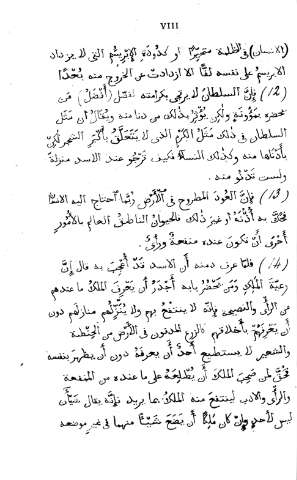 VIII
(الانسان) في الظلمة متحيرًا او كدودة الإبريسم التي لا يزداد
الابريسم على نفسه لفًّا الا ازدادت من الخروج منه بُعْدًا
(12) فإنَّ السلطان لا يرتجى بكرامته لفضل (أَفْضَلَ) مَن
بحضرته ولكن يؤثر بذلك من دنا منه ويُقال أن مَثَل
السلطان في ذلك مَثَل الكَرْم الذي لا يَتَعَلَّق بأَكْبَرِ الشجر لكن
بأَدْناها منه وكذلك فكيف تَرْجُو عند الاسد منزلةً
ولست تَدْنُو منه
(13) فإنَّ العُودَ المطروح في الأَرْض رُبَّما احتاج اليه
به أُذُنَهُ او غير ذلك فالحيوانُ الناطقُ العالم بالأمُور
أحْرَى أَنْ تكون عنده منفعةٌ
(14) فلمّا عرف دمنه أن الاسد قَدْ أُعْجِبَ به قال إنَّ
رعيَّةَ الملك وَمَن بابه أَجْدَرُ أَن يَعْرِفَ الملكُ ما عندهم
من الرأْي والنصيحة فإنّه لا ينتفع بهم ولا يُنْزِلُهم منازلهم دون
أَن يَعْرِفَهم بأَخلاقهم كالزرع المدفون في الأَرْض من الحِنْطة
والشعير لا يستطيع أَحدٌ أَن يعرفهُ دون أَن يظهر بنفسه
فحُقَّ لمن صَحِبَ الملكَ أَنْ يُطْلِعَهُ على ما عنده من المنفعة
والرأْى والادب لينتفع منه الملكُ بما يريد فإنّه يقال شَيْآن
ليس لأَحدٍ وإن كان مَلِكًا أَن يَضَع شَيْئًا منهما في غير موضعه